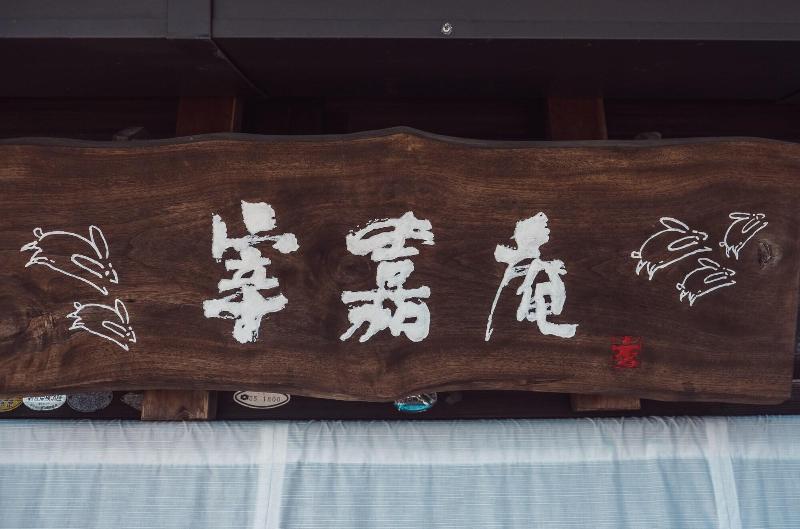 宰嘉庵